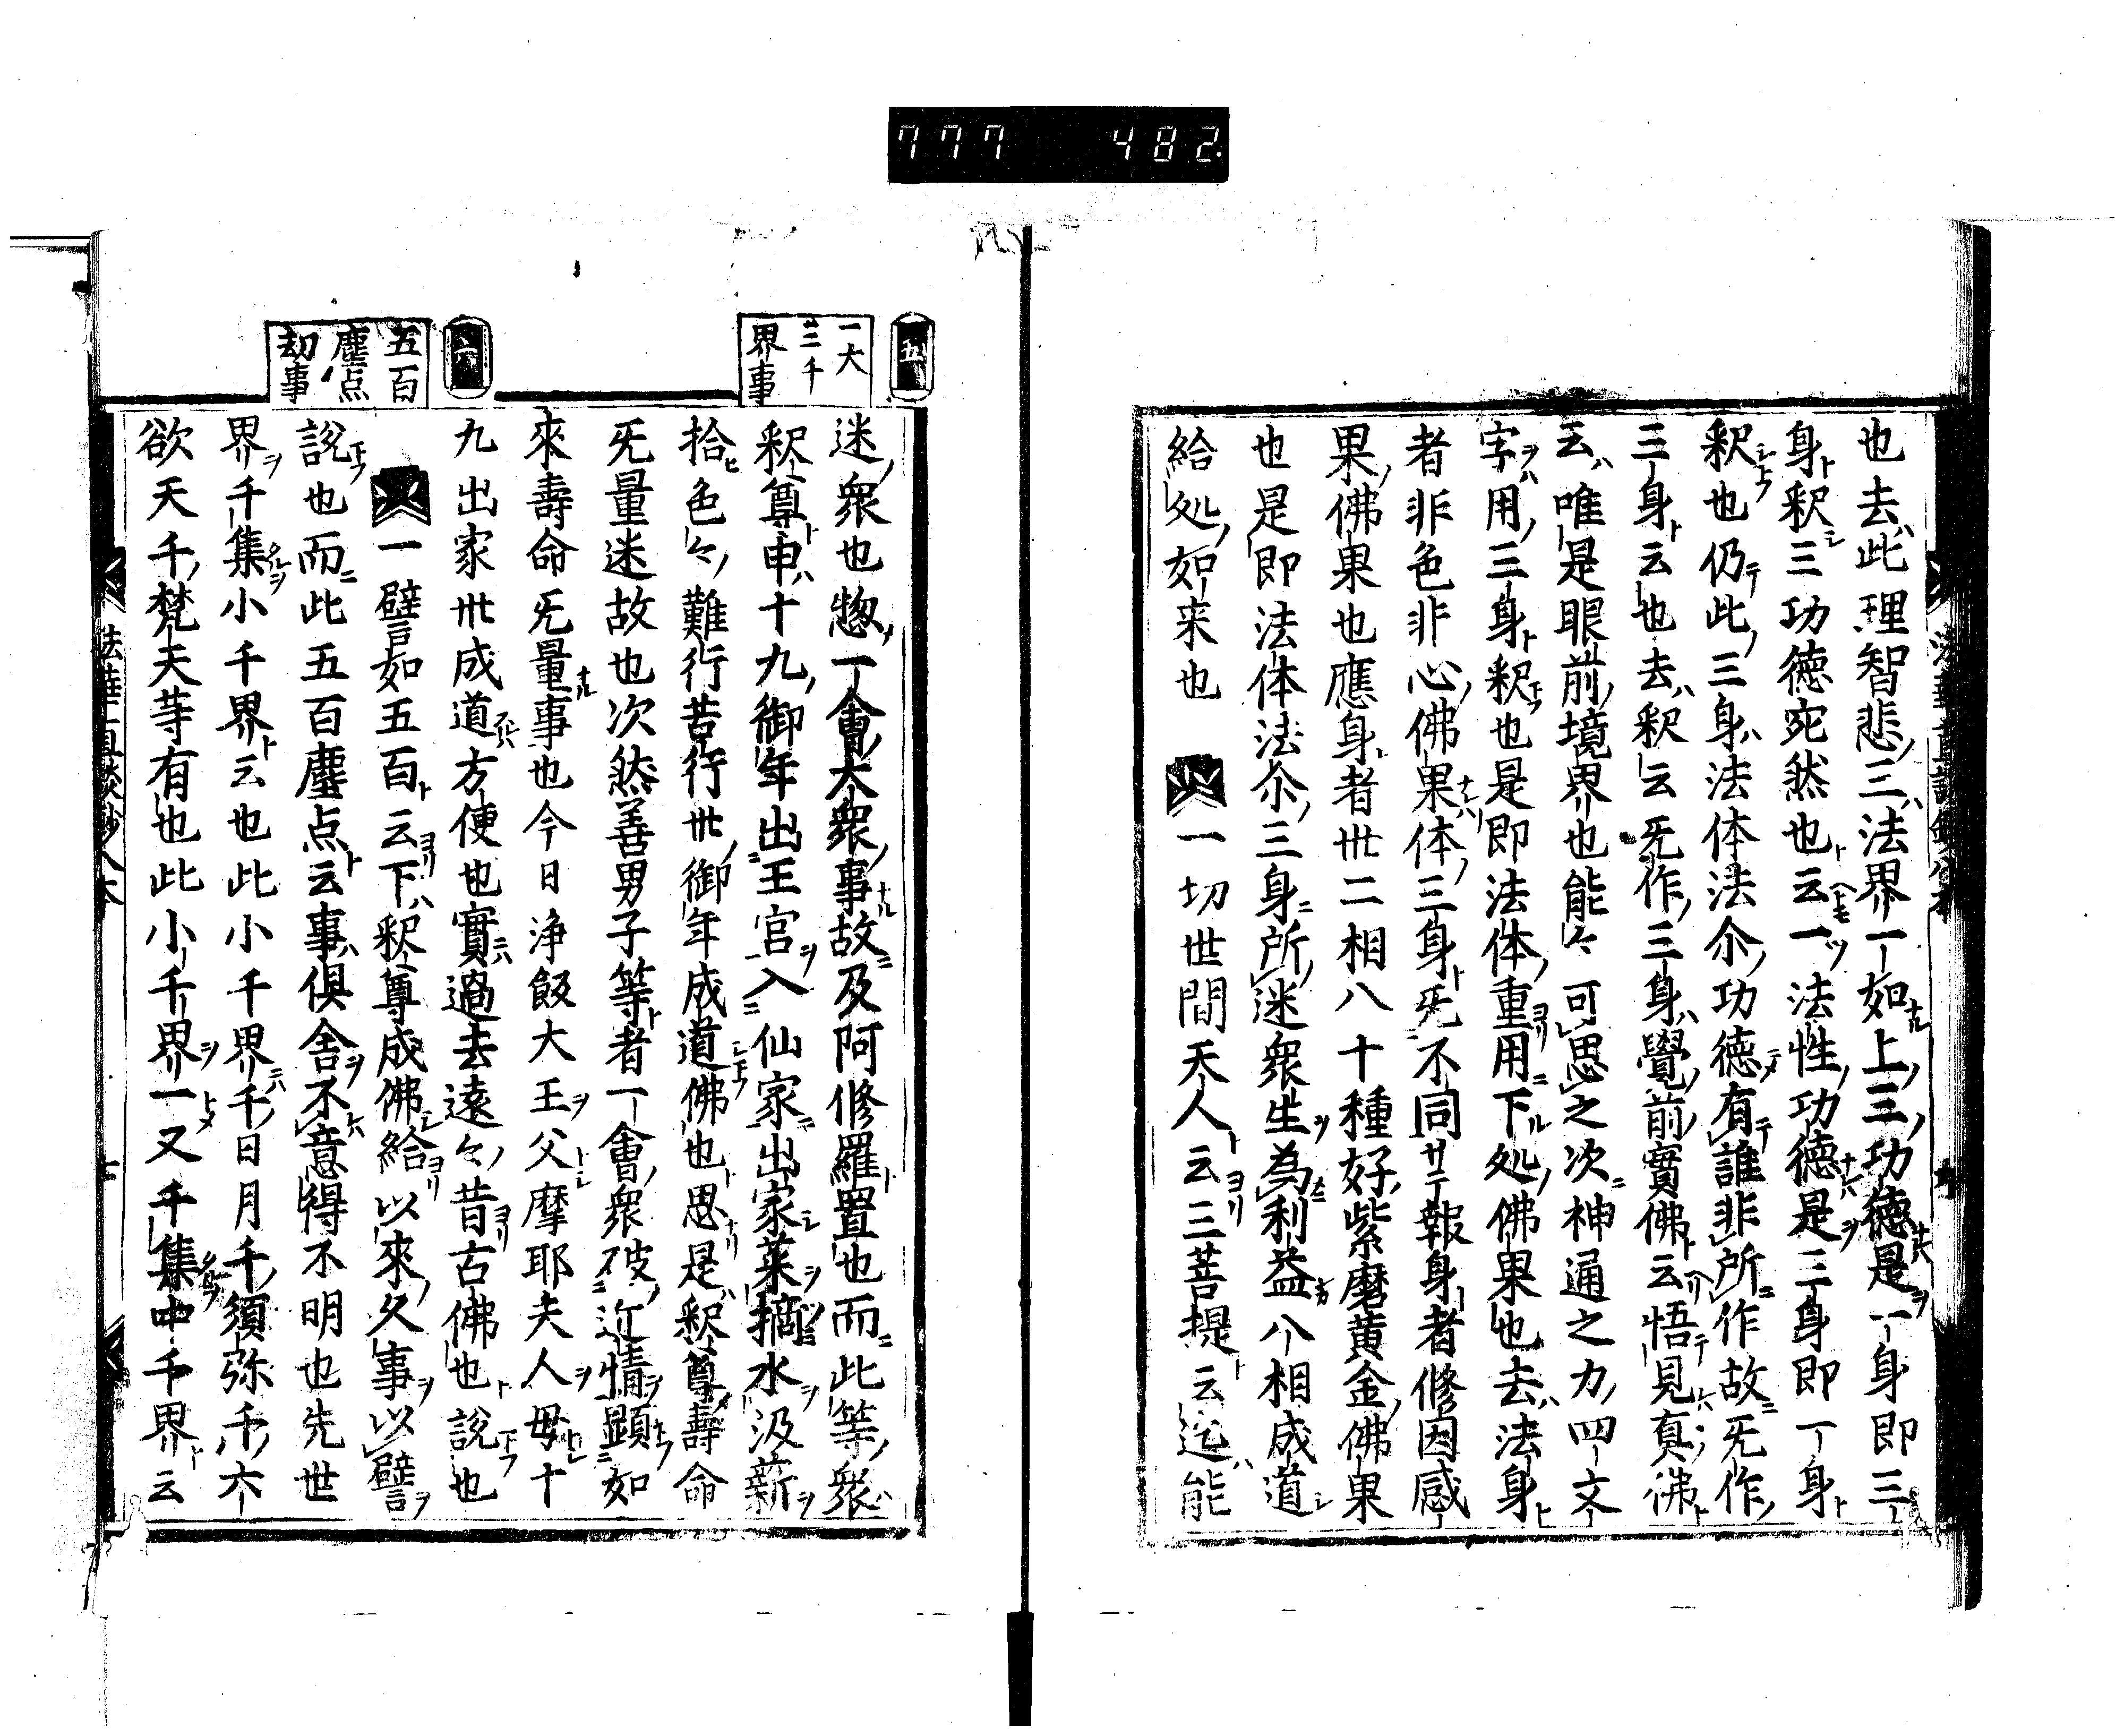 777 482
也去此理智悲三法界一如上三功徳是一身即三
身釈三功徳宛然也云一法性功徳是三身即一身
釈也仍此三身法体法尒功徳有誰非所作故旡作
三身云也去釈云旡作三身覺前實佛云悟見真佛
云唯是眼前境界也能々可思之次神通之力四文
字用三身釈也是即法体重用下処佛果也去法身
者非色非心佛果体三身旡不同サテ報身者修因感
果佛果也應身者丗二相八十種好紫磨黄金佛果
也是即法体法尒三身所迷衆生為利益八相成道
給処如来也 一切世間天人云三菩提云迄能
五
一大三千界事
迷衆也惣一會大衆事故及阿修羅置也而此等衆
釈尊申十九御年出王宮入仙家出家菜摘水汲薪
拾色々難行苦行丗御年成道佛也思是釈尊壽命
旡量迷故也次然善男子等者一會衆破近情顕如
來壽命旡量事也今日浄飯大王父摩耶夫人母十
九出家丗成道方便也實過去遠々昔古佛也説也
六
五百塵点劫事
一譬如五百云下釈尊成佛給以來久事以譬
説也而此五百塵点云事倶舎不意得不明也先世
界千集小千界云也此小千界千日月千須弥千六
欲天千梵天等有也此小千界一又千集中千界云